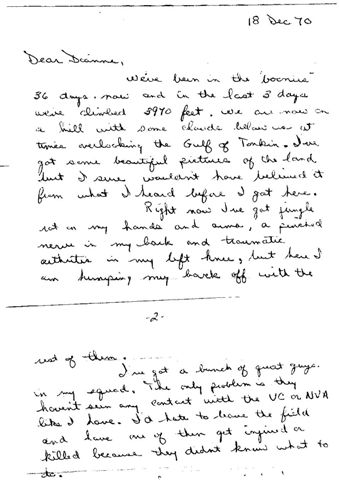 18 Dec 70
Dear Dianne,
We've been in the "boonies"
36 days now and in the last 3 days
we've climbed 3970 feet. We are now on
a hill with some clouds below us at
times overlooking the Gulf of Tonkin. I've
got some beautiful pictures of the land
but I sure wouldn't have believed it
from what I heard before I got here.
Right now I've got jungle
rot on my hands and arms, a pinched
nerve in my back and traumatic
arthritis in my left knee, but here I
am humping my back off with the
-2-
rest of them.
I've got a bunch of great guys
in my squad. The only problem is they
haven't seen any contact with the VC or NVA
like I have. I'd hate to leave the field
and have one of them get injured or
killed because they didn't know what to
do.